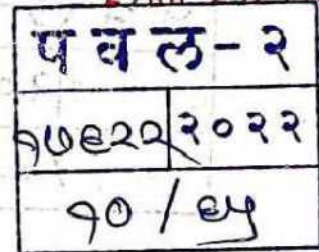 प व ल - २
१७६२२ २०२२
१० / ६५